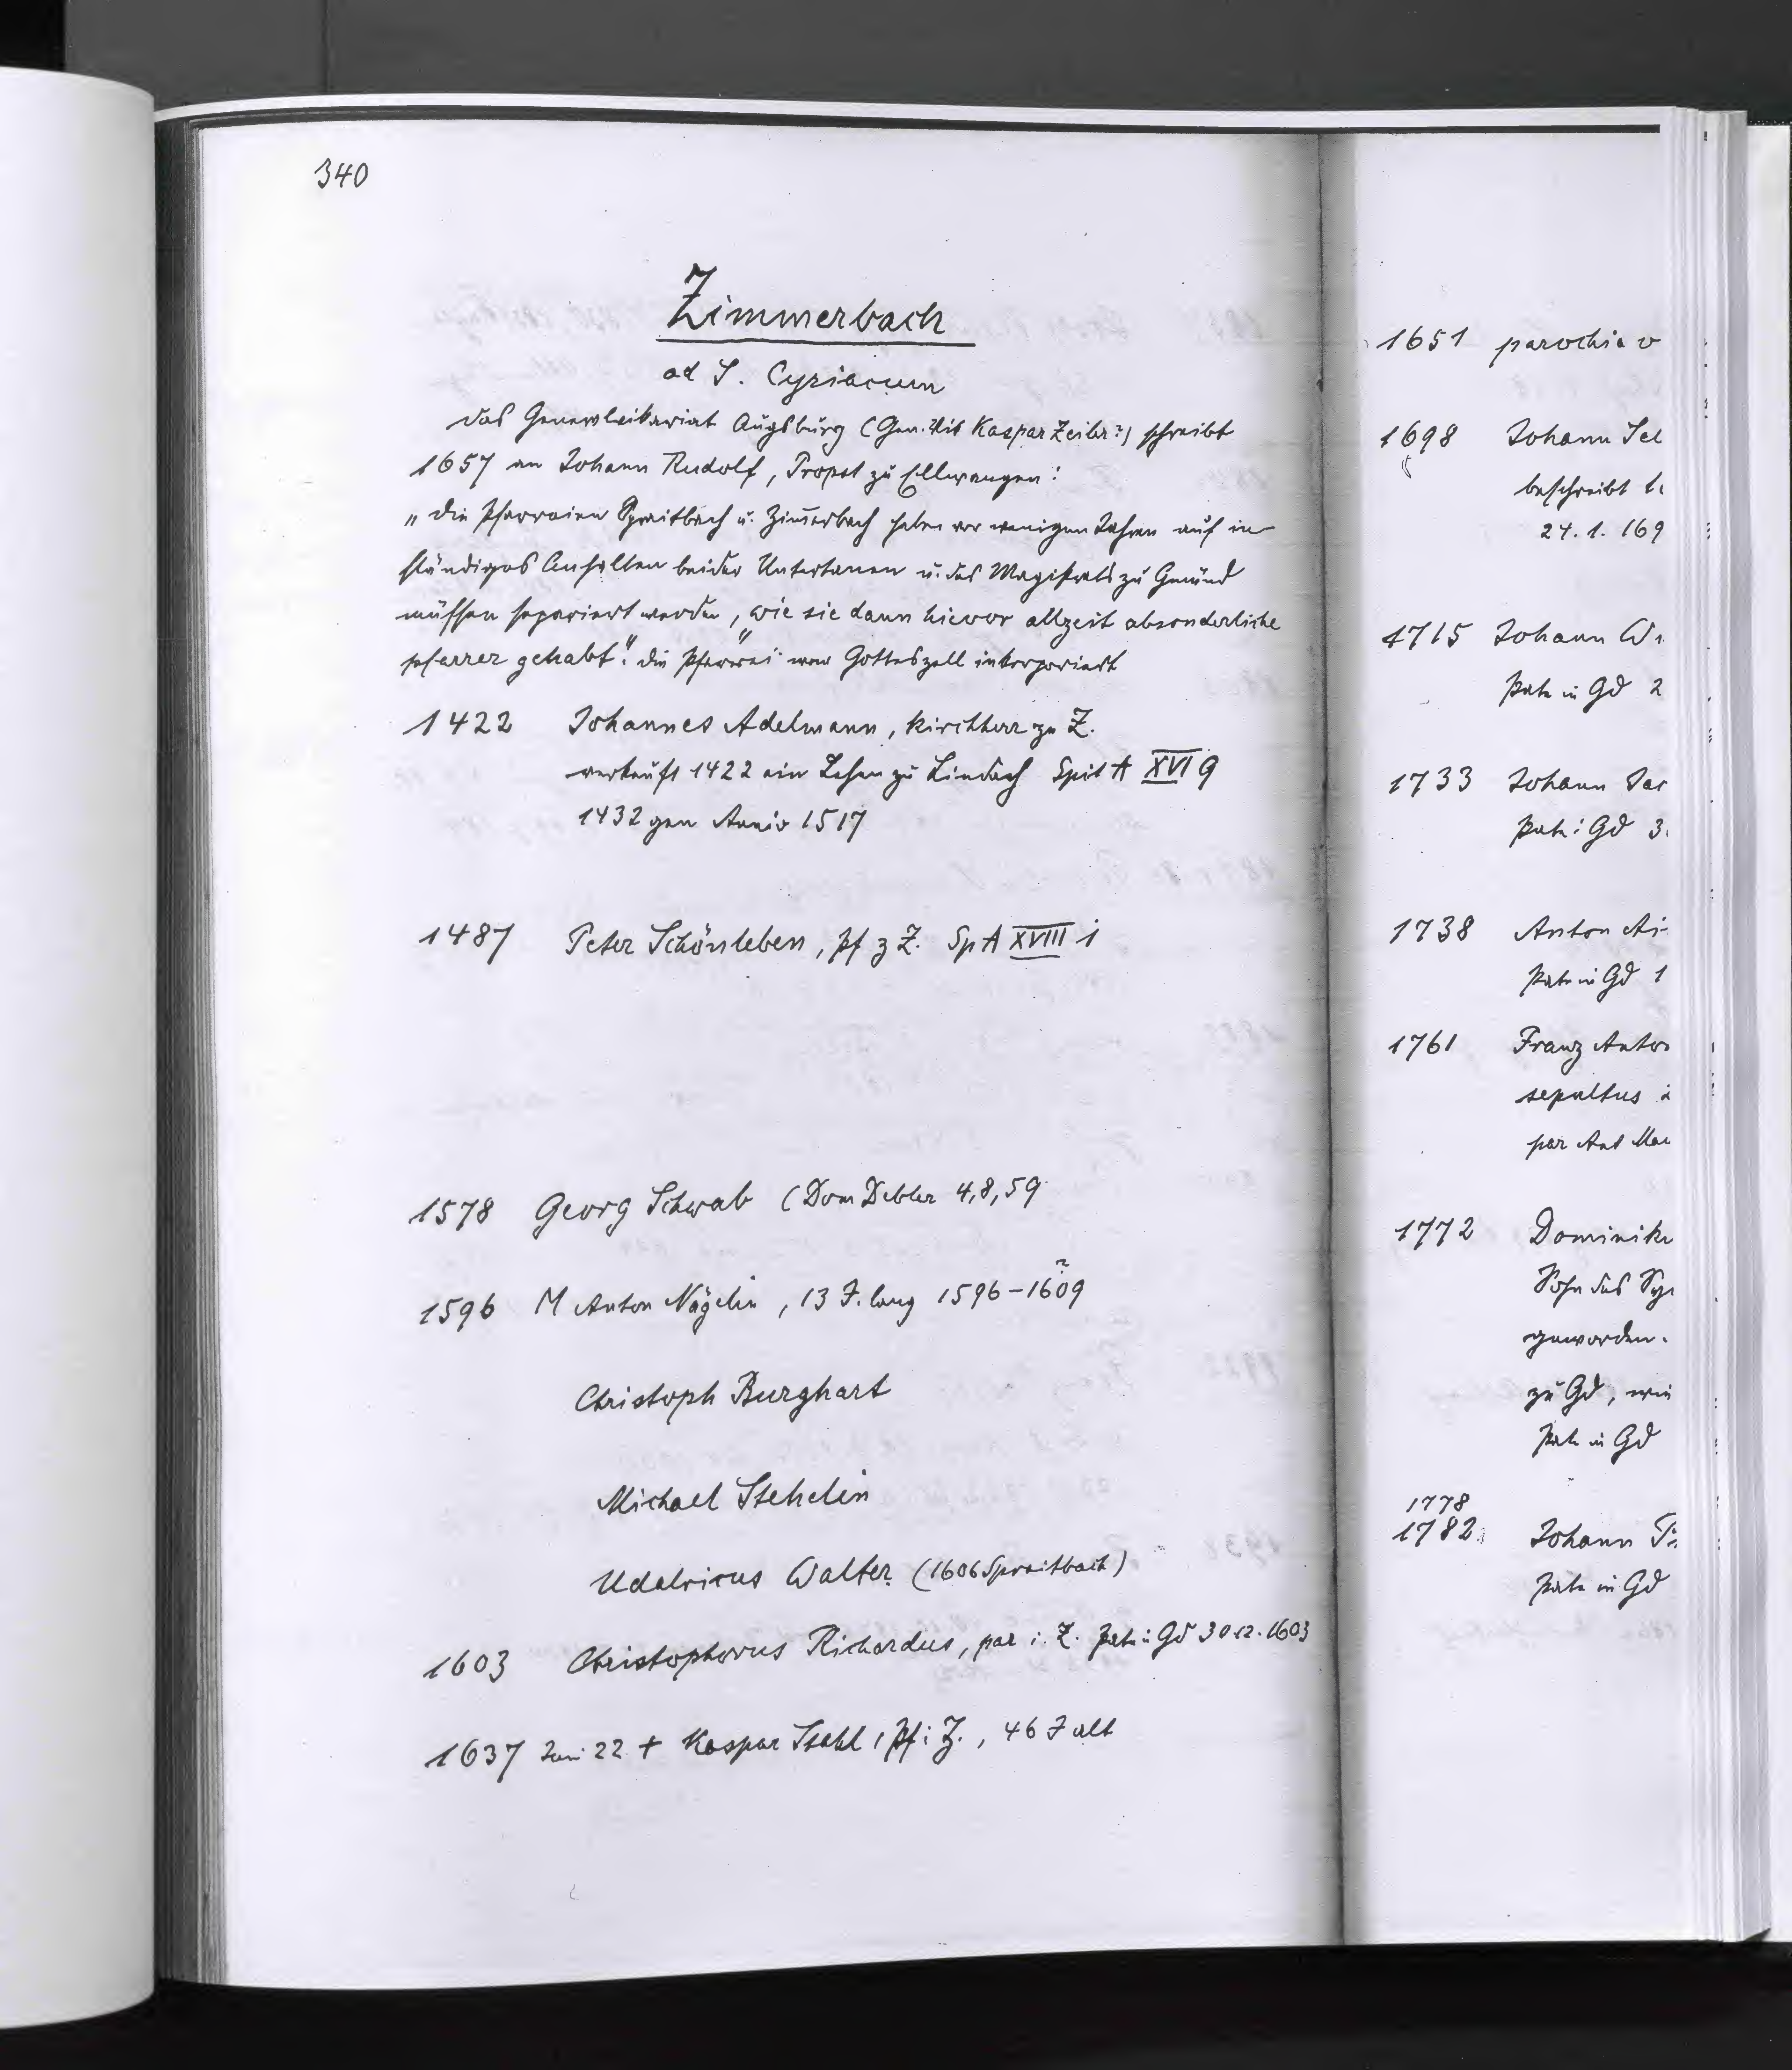 340
Zimmerbach
ad S. Cyriacum
Das Generalvikariat Augsburg (Gen. Vik Kaspar Zeiler?) schreibt
1657 an Johann Rudolf, Propst zu Ellwangen:
„Die Pfarreien Spraitbach u. Zim̄erbach haben vor wenigen Jahren auf in-
ständiges Anhalten beider Untertanen u. des Magistrats zu Gmünd
müssen separiert werden, „wie sie dann hievor allzeit absonderliche
pfarrer gehabt“. Die Pfarrei war Gotteszell inkorporiert
1422 Johannes Adelmann, Kirchherr zu Z.
verkauft 1422 ein Lehen zu Lindach Spit A XVI 9
1432 gen Anniv 1517
1487 Peter Schönleben, Pf z Z. Sp A XVIII 1
1578 Georg Schwab (Dom Debler 4,8,59
1596 M Anton Nägelin, 13 J. lang 1596-1609 ?
Christoph Burghart
Michael Stehelin
Udalricus Walter (1606 Spraitbach)
1603 Christophorus Richardus, par i. Z. Pate i Gd 30 12. 1603
1637 Juni 22 + Kaspar Stahl, Pf i Z., 46 J alt
1651 parochia v
1698 Johann Sel
beschreibt
24. 1. 169
1715 Johann
Pate in Gd 2
1733 Johann Jac
Pate i Gd 3
1738 Anton
Pate in Gd 1
1761 Franz Anto
sepultus
par Ant
1772 Dominik
Sohn des
geworden.
zu Gd, wie
Pate in Gd
1778
1782 Johann
Pate in Gd